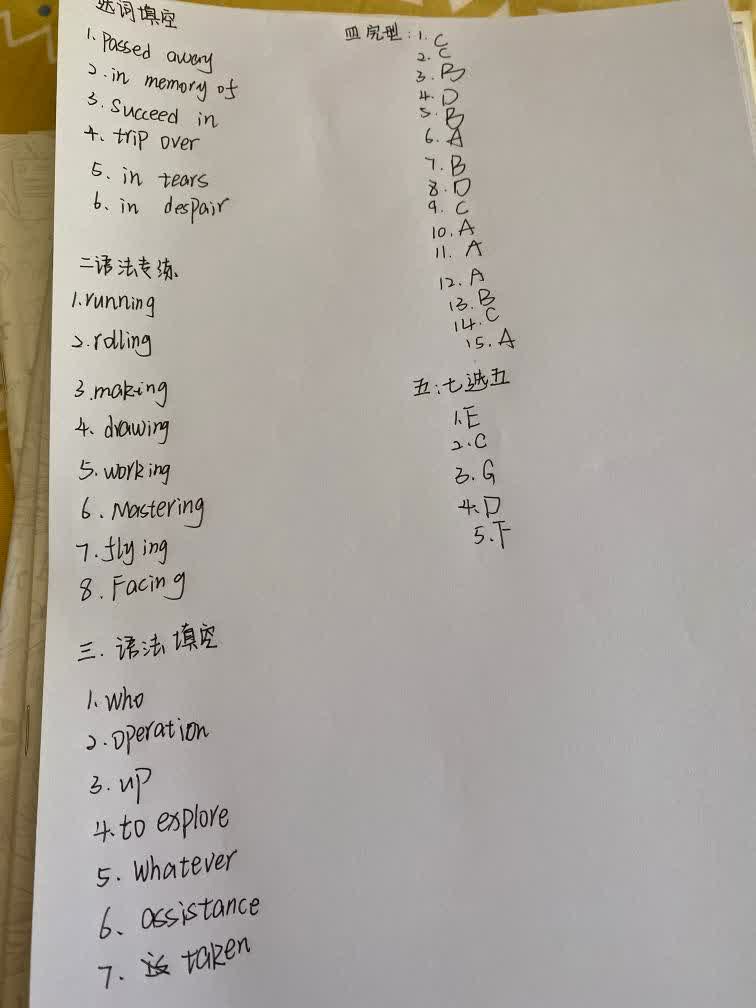 选词填空
1. Passed away
2. in memory of
3. Succeed in
4. trip over
5. in tears
6. in despair
二语法专练
1. running
2. rolling
3. making
4. drawing
5. working
6. Mastering
7. flying
8. Facing
三. 语法填空
1. who
2. operation
3. up
4. to explore
5. Whatever
6. assistance
7. taken
四完型:1. C
2. C
3. B
4. D
5. B
6. A
7. B
8. D
9. C
10. A
11. A
12. A
13. B
14. C
15. A
五:七选五
1. E
2. C
3. G
4. D
5. F